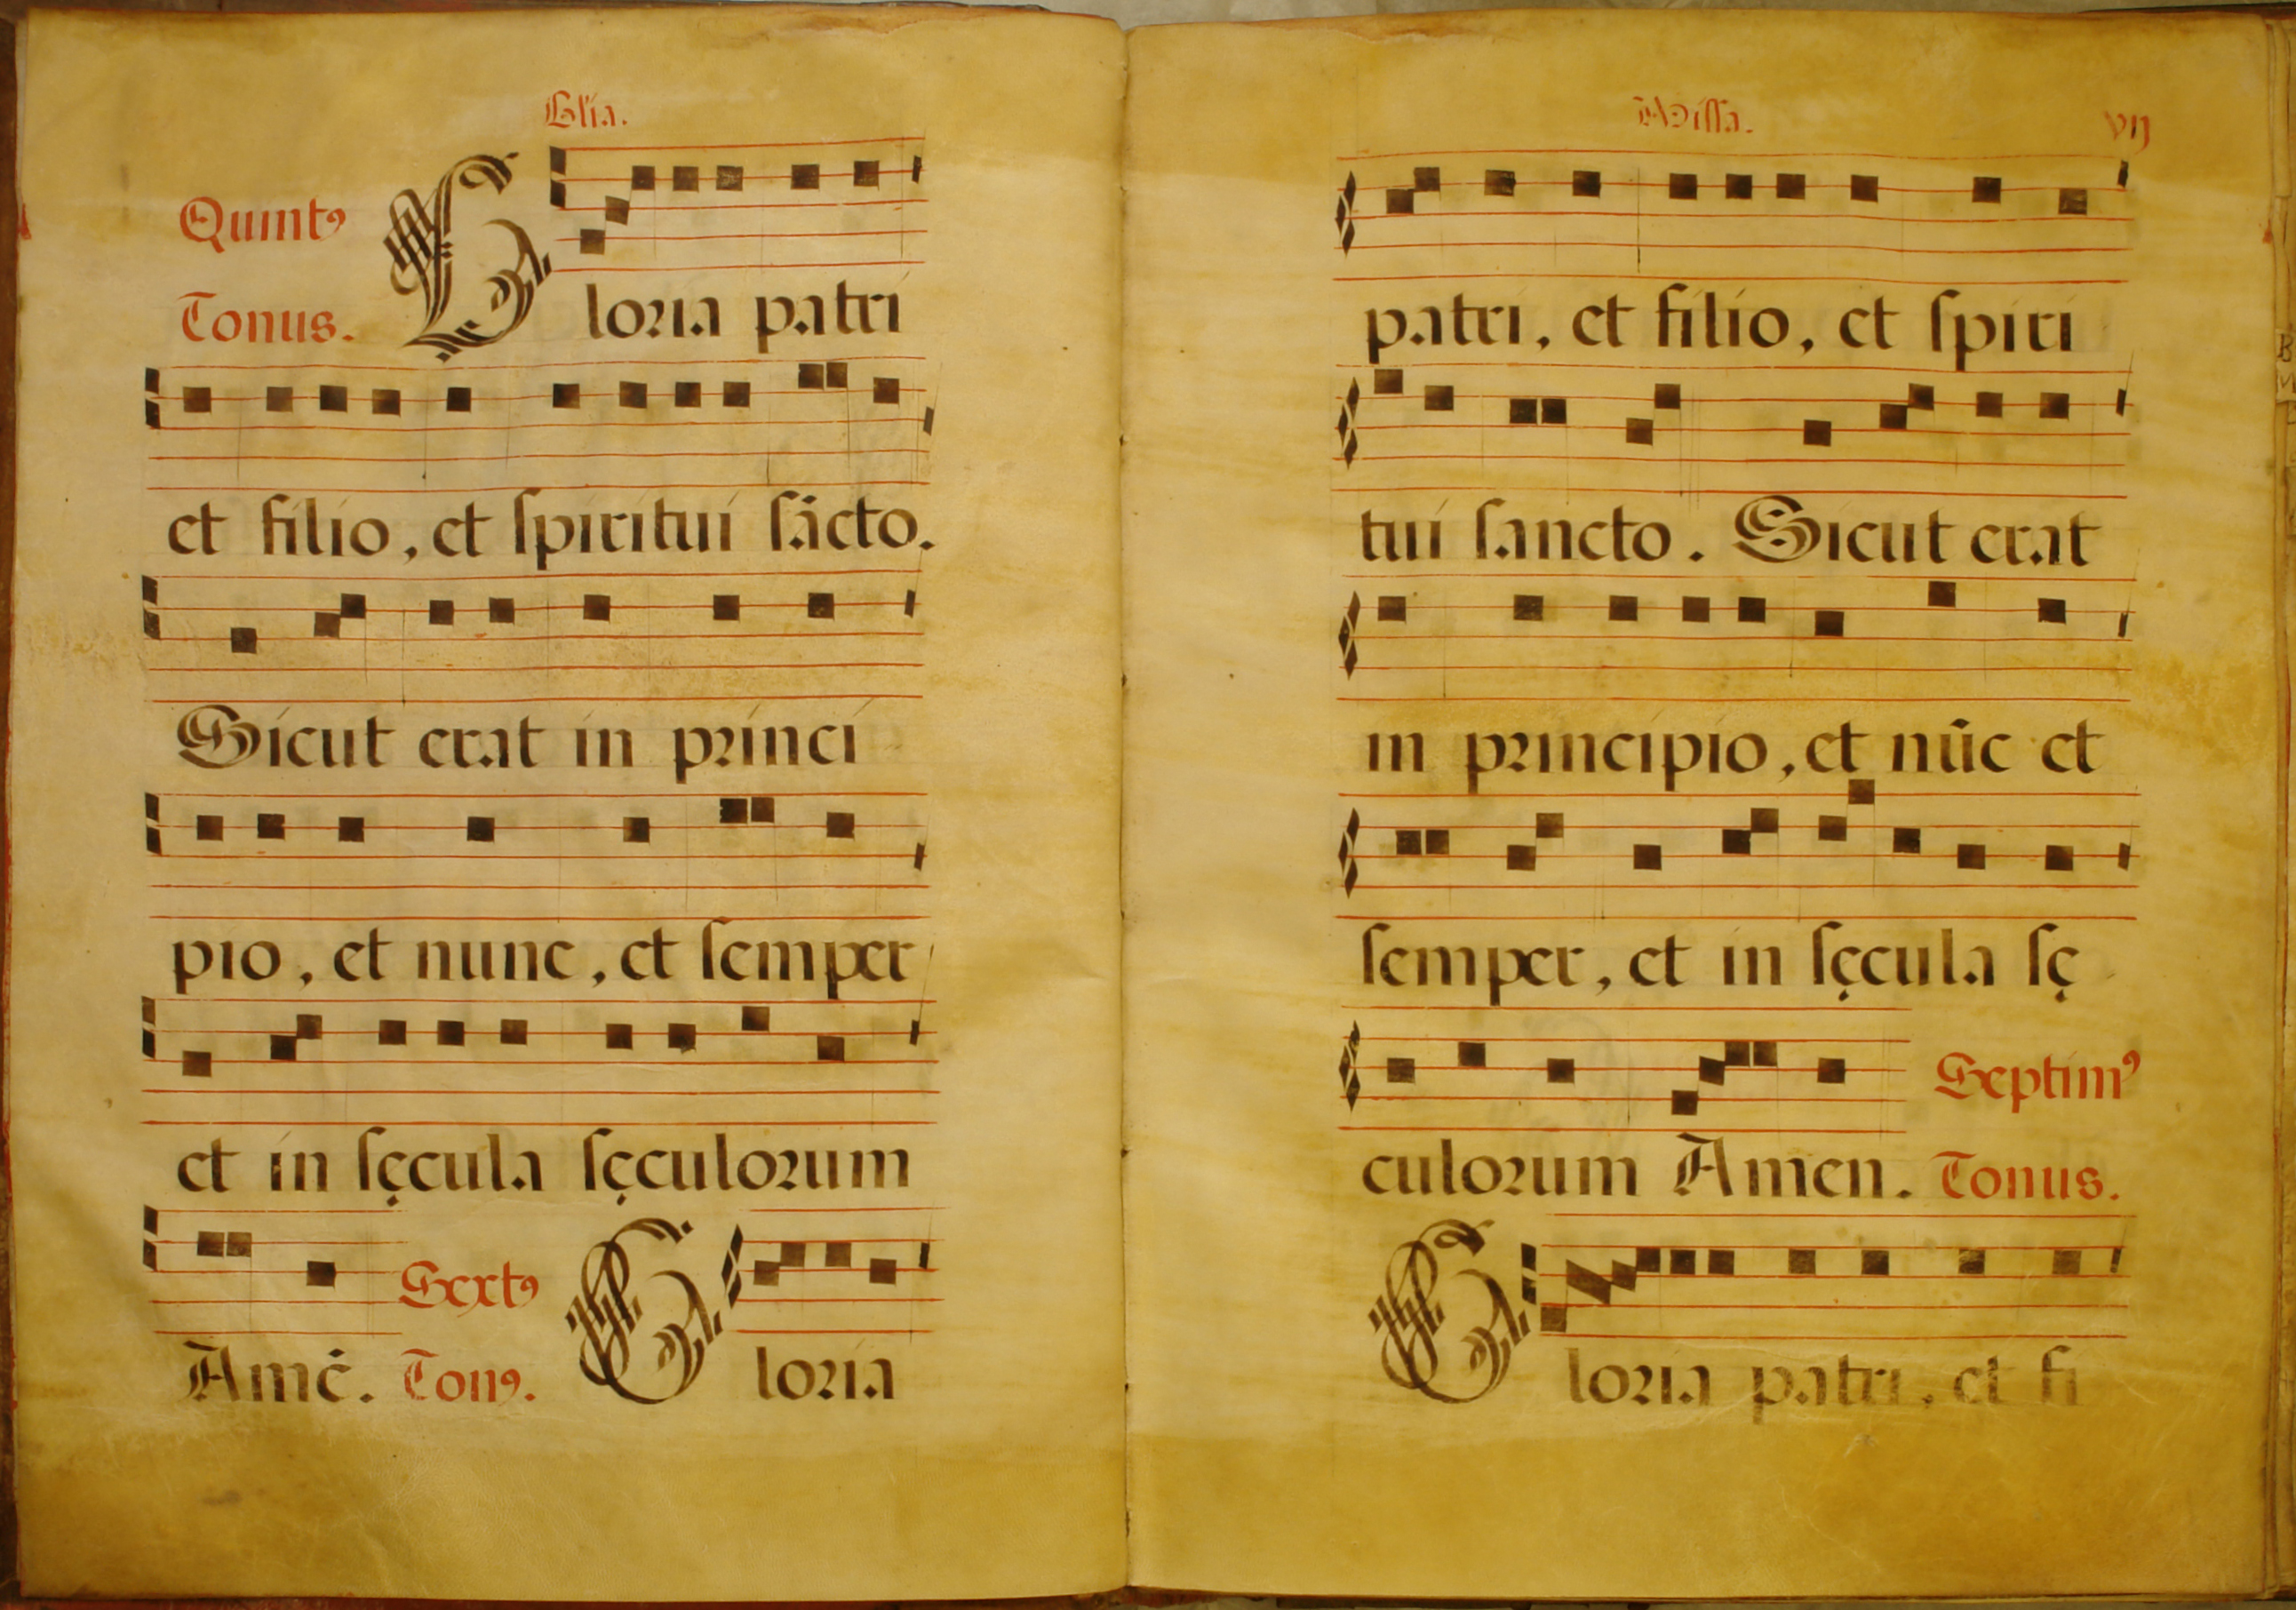 Glia.
Quintꝯ
Tonus.
Gloria patri
et filio, et spiritui sācto.
Sicut erat in princi
pio, et nunc, et semper
et in sęcula sęculorum
Amē. Sextꝯ Tonꝯ. Gloria
Missa. vij
patri, et filio, et spiri
tui sancto. Sicut erat
in principio, et nūc et
semper, et in sęcula sę
culorum Amen. Septimꝯ Tonus.
Gloria patri, et fi